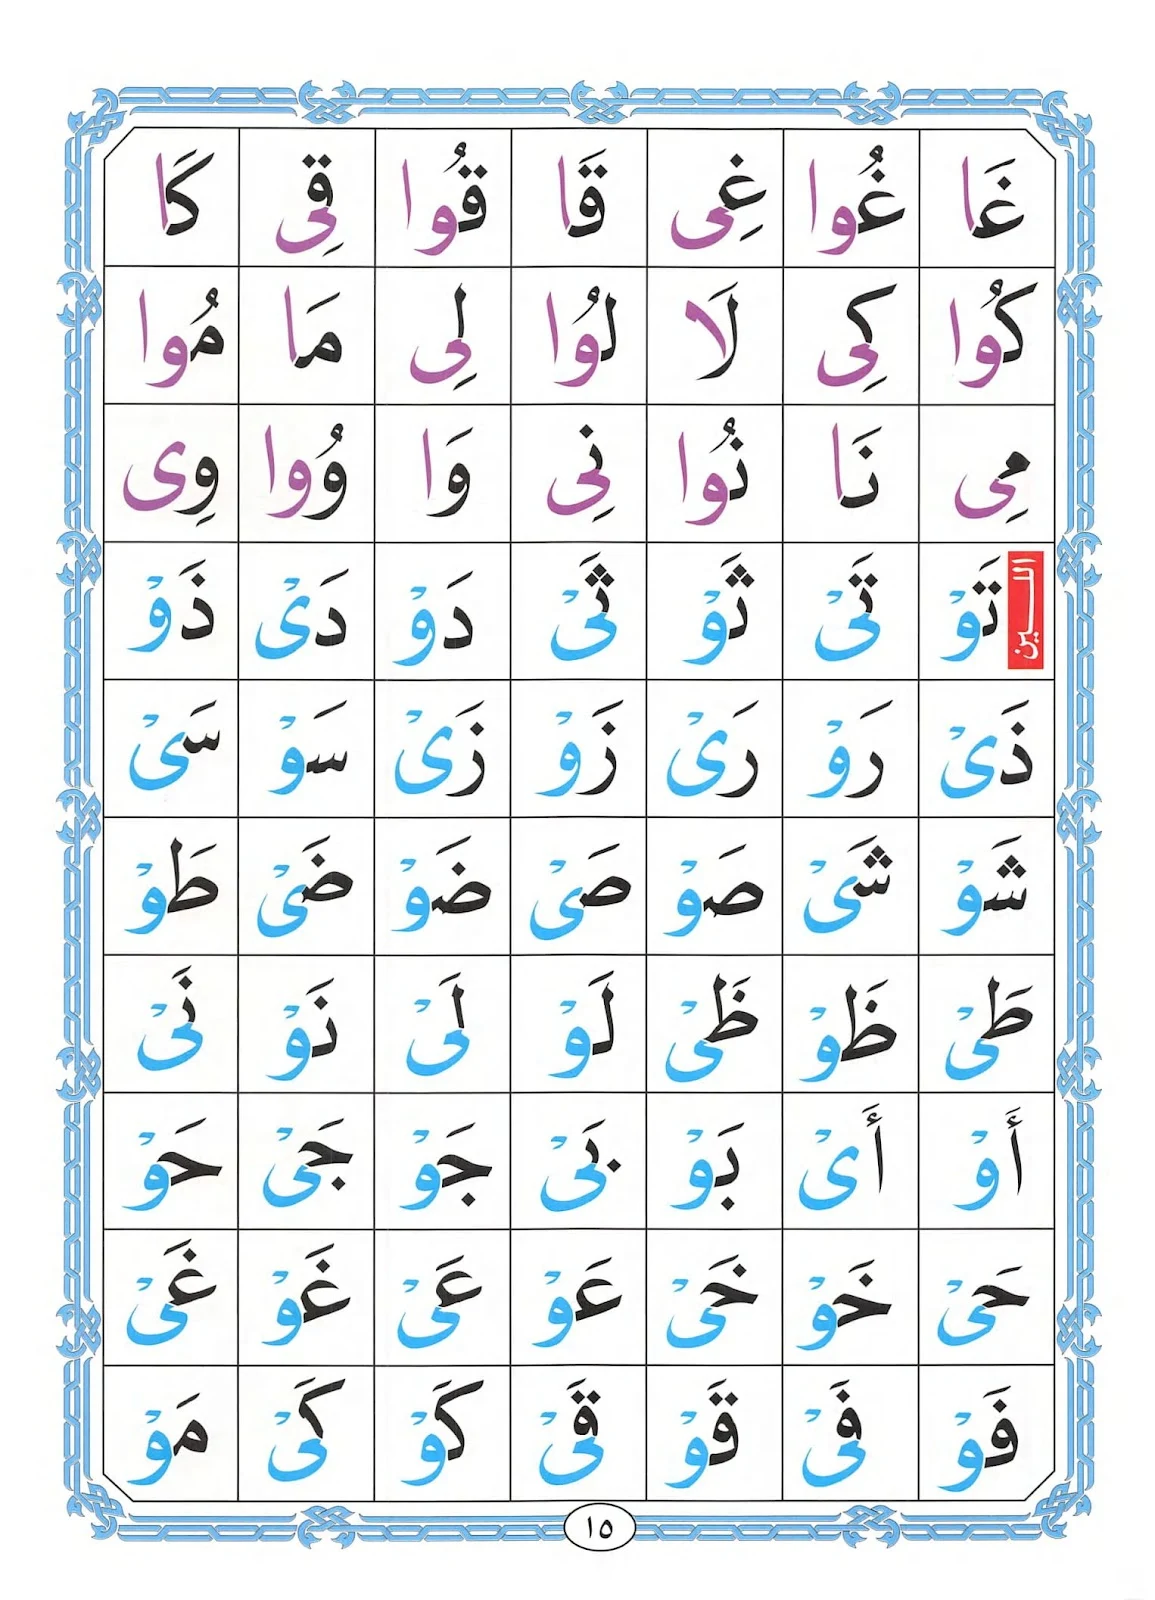 غَا غُوا غِى قَا قُوا قِى كَا
كُوا كِى لَا لُوا لِى مَا مُوا
مِى نَا نُوا نِى وَا وُوا وِى
اللــين تَوْ تَىْ ثَوْ ثَىْ دَوْ دَىْ ذَوْ
ذَىْ رَوْ رَىْ زَوْ زَىْ سَوْ سَىْ
شَوْ شَىْ صَوْ صَىْ ضَوْ ضَىْ طَوْ
طَىْ ظَوْ ظَىْ لَوْ لَىْ نَوْ نَىْ
أَوْ أَىْ بَوْ بَىْ جَوْ جَىْ حَوْ
حَىْ خَوْ خَىْ عَوْ عَىْ غَوْ غَىْ
فَوْ فَىْ قَوْ قَىْ كَوْ كَىْ مَوْ
١٥